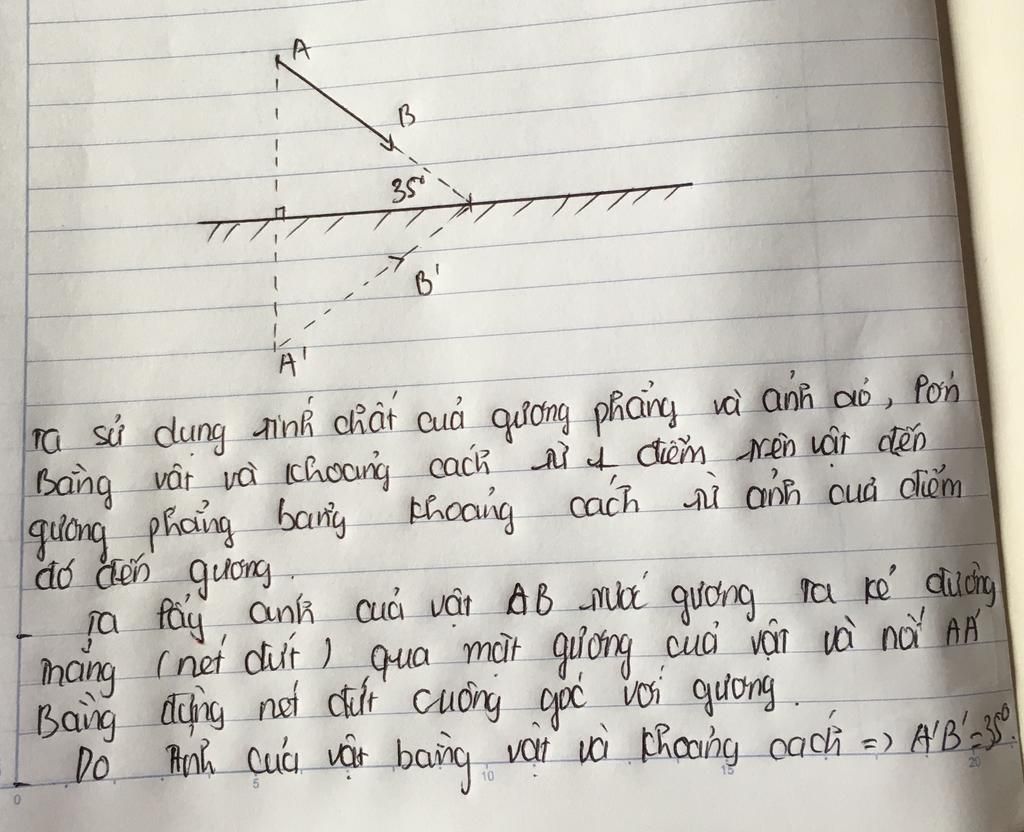 A
B
35°
B'
A'
Ta sử dụng tính chất của gương phẳng và ảnh ảo, lớn
Bằng vật và khoảng cách từ 1 điểm trên vật đến
gương phẳng bằng khoảng cách từ ảnh của điểm
đó đến gương.
- Ta lấy ảnh của vật AB trước gương ta kẻ đường
thẳng (nét đứt) qua mặt gương của vật và nối AA'
Bằng đường nét đứt vuông góc với gương.
- Do Ảnh của vật bằng vật và khoảng cách => A'B' = 35°.
0 5 10 15 20